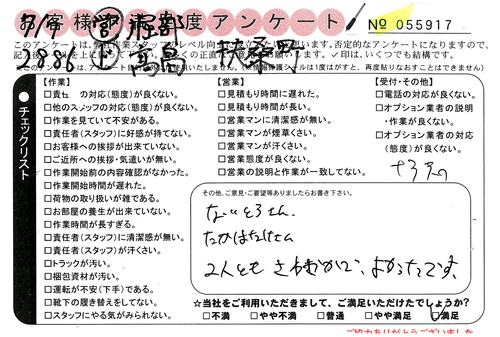 お客様満足度アンケート
No 055917
7/9 営 服部
高島
このアンケートは、
否定的なアンケートになりますので、
✓印は、いくつでも結構です。
チェックリスト
【作業】
の対応(態度)が良くない。
□他のスタッフの対応(態度)が良くない。
□作業を見ていて不安がある。
□責任者(スタッフ)に好感が持てない。
□お客様への挨拶が出来ていない。
□ご近所への挨拶・気遣いが無い。
□作業開始前の内容確認がなかった。
□作業開始時間が遅れた。
□荷物の取り扱いが雑である。
□お部屋の養生が出来ていない。
□作業時間が長すぎる。
□責任者(スタッフ)に清潔感が無い。
□責任者(スタッフ)が汗くさい。
□トラックが汚い。
□梱包資材が汚い。
□運転が不安(下手)である。
□靴下の履き替えをしてない。
□スタッフにやる気がみられない。
【営業】
□見積もり時間に遅れた。
□見積もり時間が長い。
□営業マンに清潔感が無い。
□営業マンが煙草くさい。
□営業マンが汗くさい。
□営業態度が良くない。
□営業の説明と作業が一致してない。
【受付・その他】
□電話の対応が良くない。
□オプション業者の説明
・作業が良くない。
□オプション業者の対応
(態度)が良くない。
その他、ご意見・ご要望等ありましたらお書き下さい。
2人とも さわやかで、よかったです。
☆当社をご利用いただきまして、ご満足いただけたでしょうか?
□不満 □やや不満 □普通 □やや満足 □満足
ご協力ありがとうございました